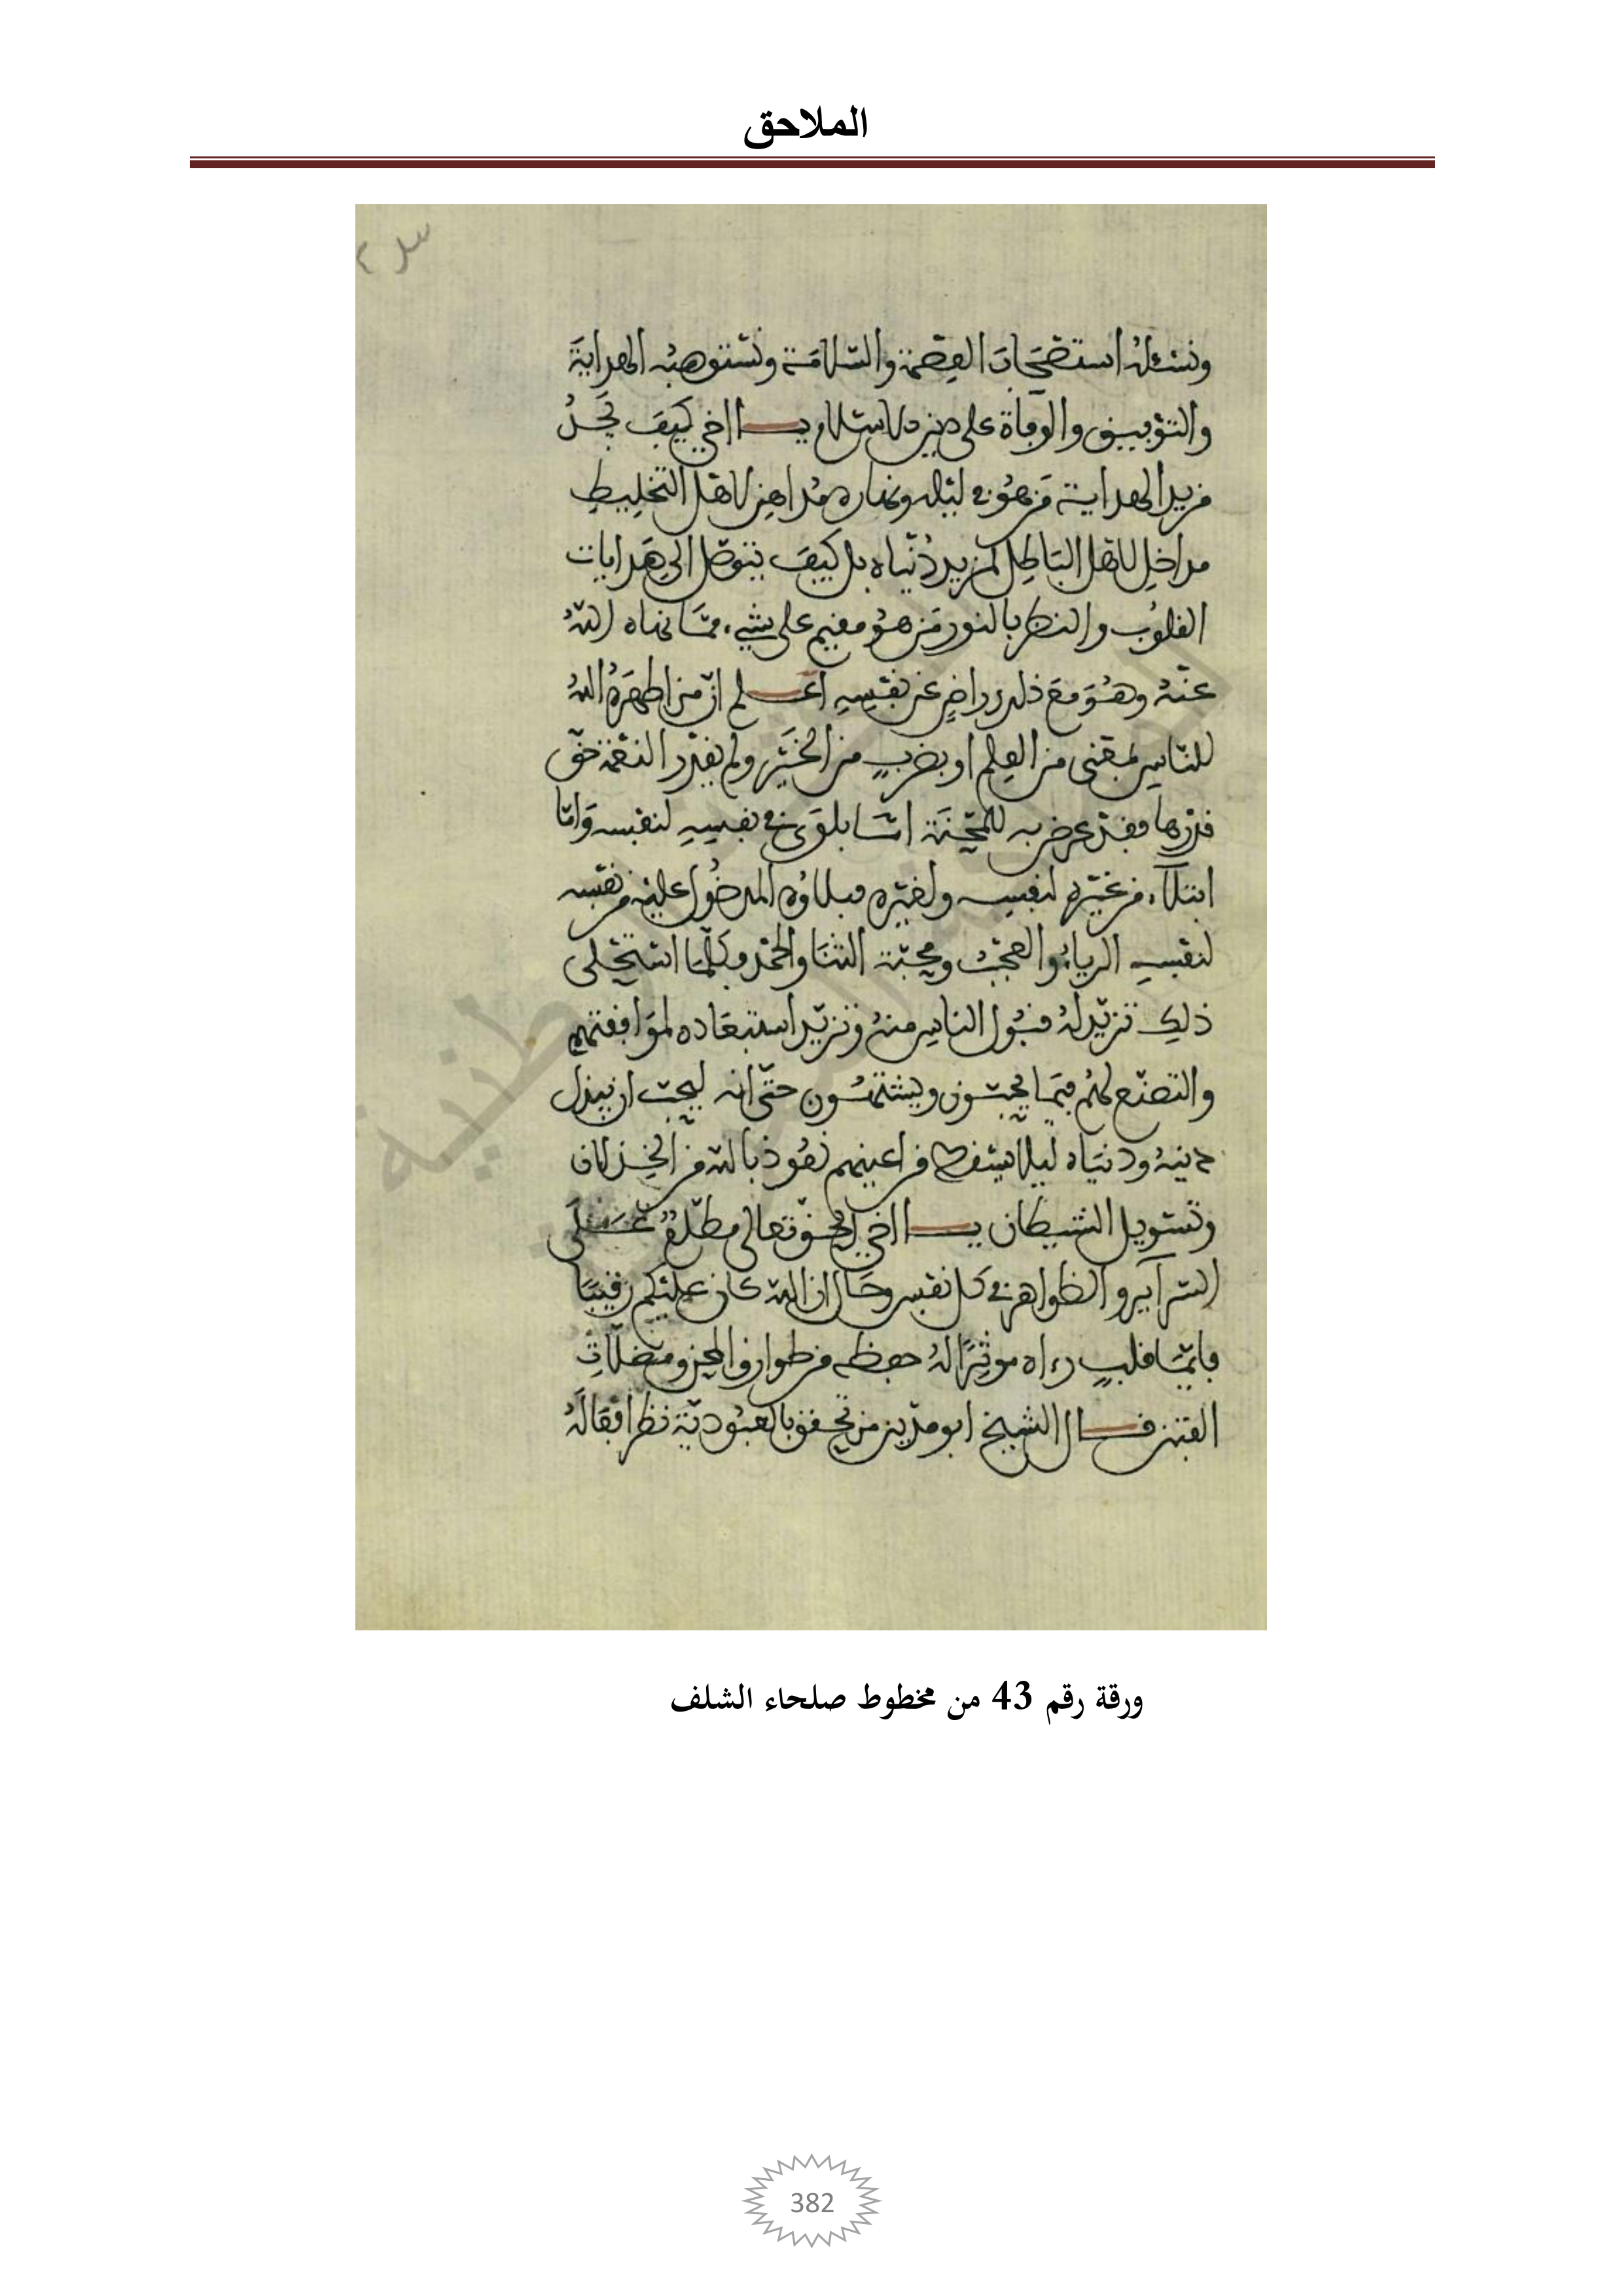 الملاحق
ونسئله استصحاب العصمة والسلامة ونستوهبه الهداية
والتوفيق والوفاة على دين الاسلام يا اخي كيف يجد
مزيد الهداية من هو في ليله ونهاره مداهن لاهل التخليط
مداخل لاهل الباطل لمزيد دنياه بل كيف يتوصل الى هدايات
القلوب والنظر بالنور من هو مقيم على شيء مما نهاه الله
عنه وهو مع ذلك راض عن نفسه اعلم ان من اظهره الله
للناس بمعنى من العلم او بضرب من الخير ولم يقدر النعمة حق
قدرها فقد عرض به للمحنة اما بلوى في نفسه لنفسه واما
ابتلاء من غيره لنفسه ولغيره فبلاؤه المدخول عليه من نفسه
لنفسه الرياء والعجب ومحبة الثنا والحمد وكلما استحلى
ذلك تزيد له قبول الناس منه وتزيد استبعاده لموافقتهم
والتصنع لهم فيما يحبون ويشتهون حتى انه ليحب ان يبذل
دينه ودنياه ليلا يسقط من اعينهم نعوذ بالله من الخذلان
وتسويل الشيطان يا اخي الحق تعالى مطلع على
السرآير والظواهر في كل نفس وحال ان الله كان عليكم رقيبا
فايما قلب رءاه موثرا له حفظه من طوارق المحن ومضلات
الفتن قال الشيخ ابو مدين من تحقق بالعبودية نظر افعاله
ورقة رقم 43 من مخطوط صلحاء الشلف
382